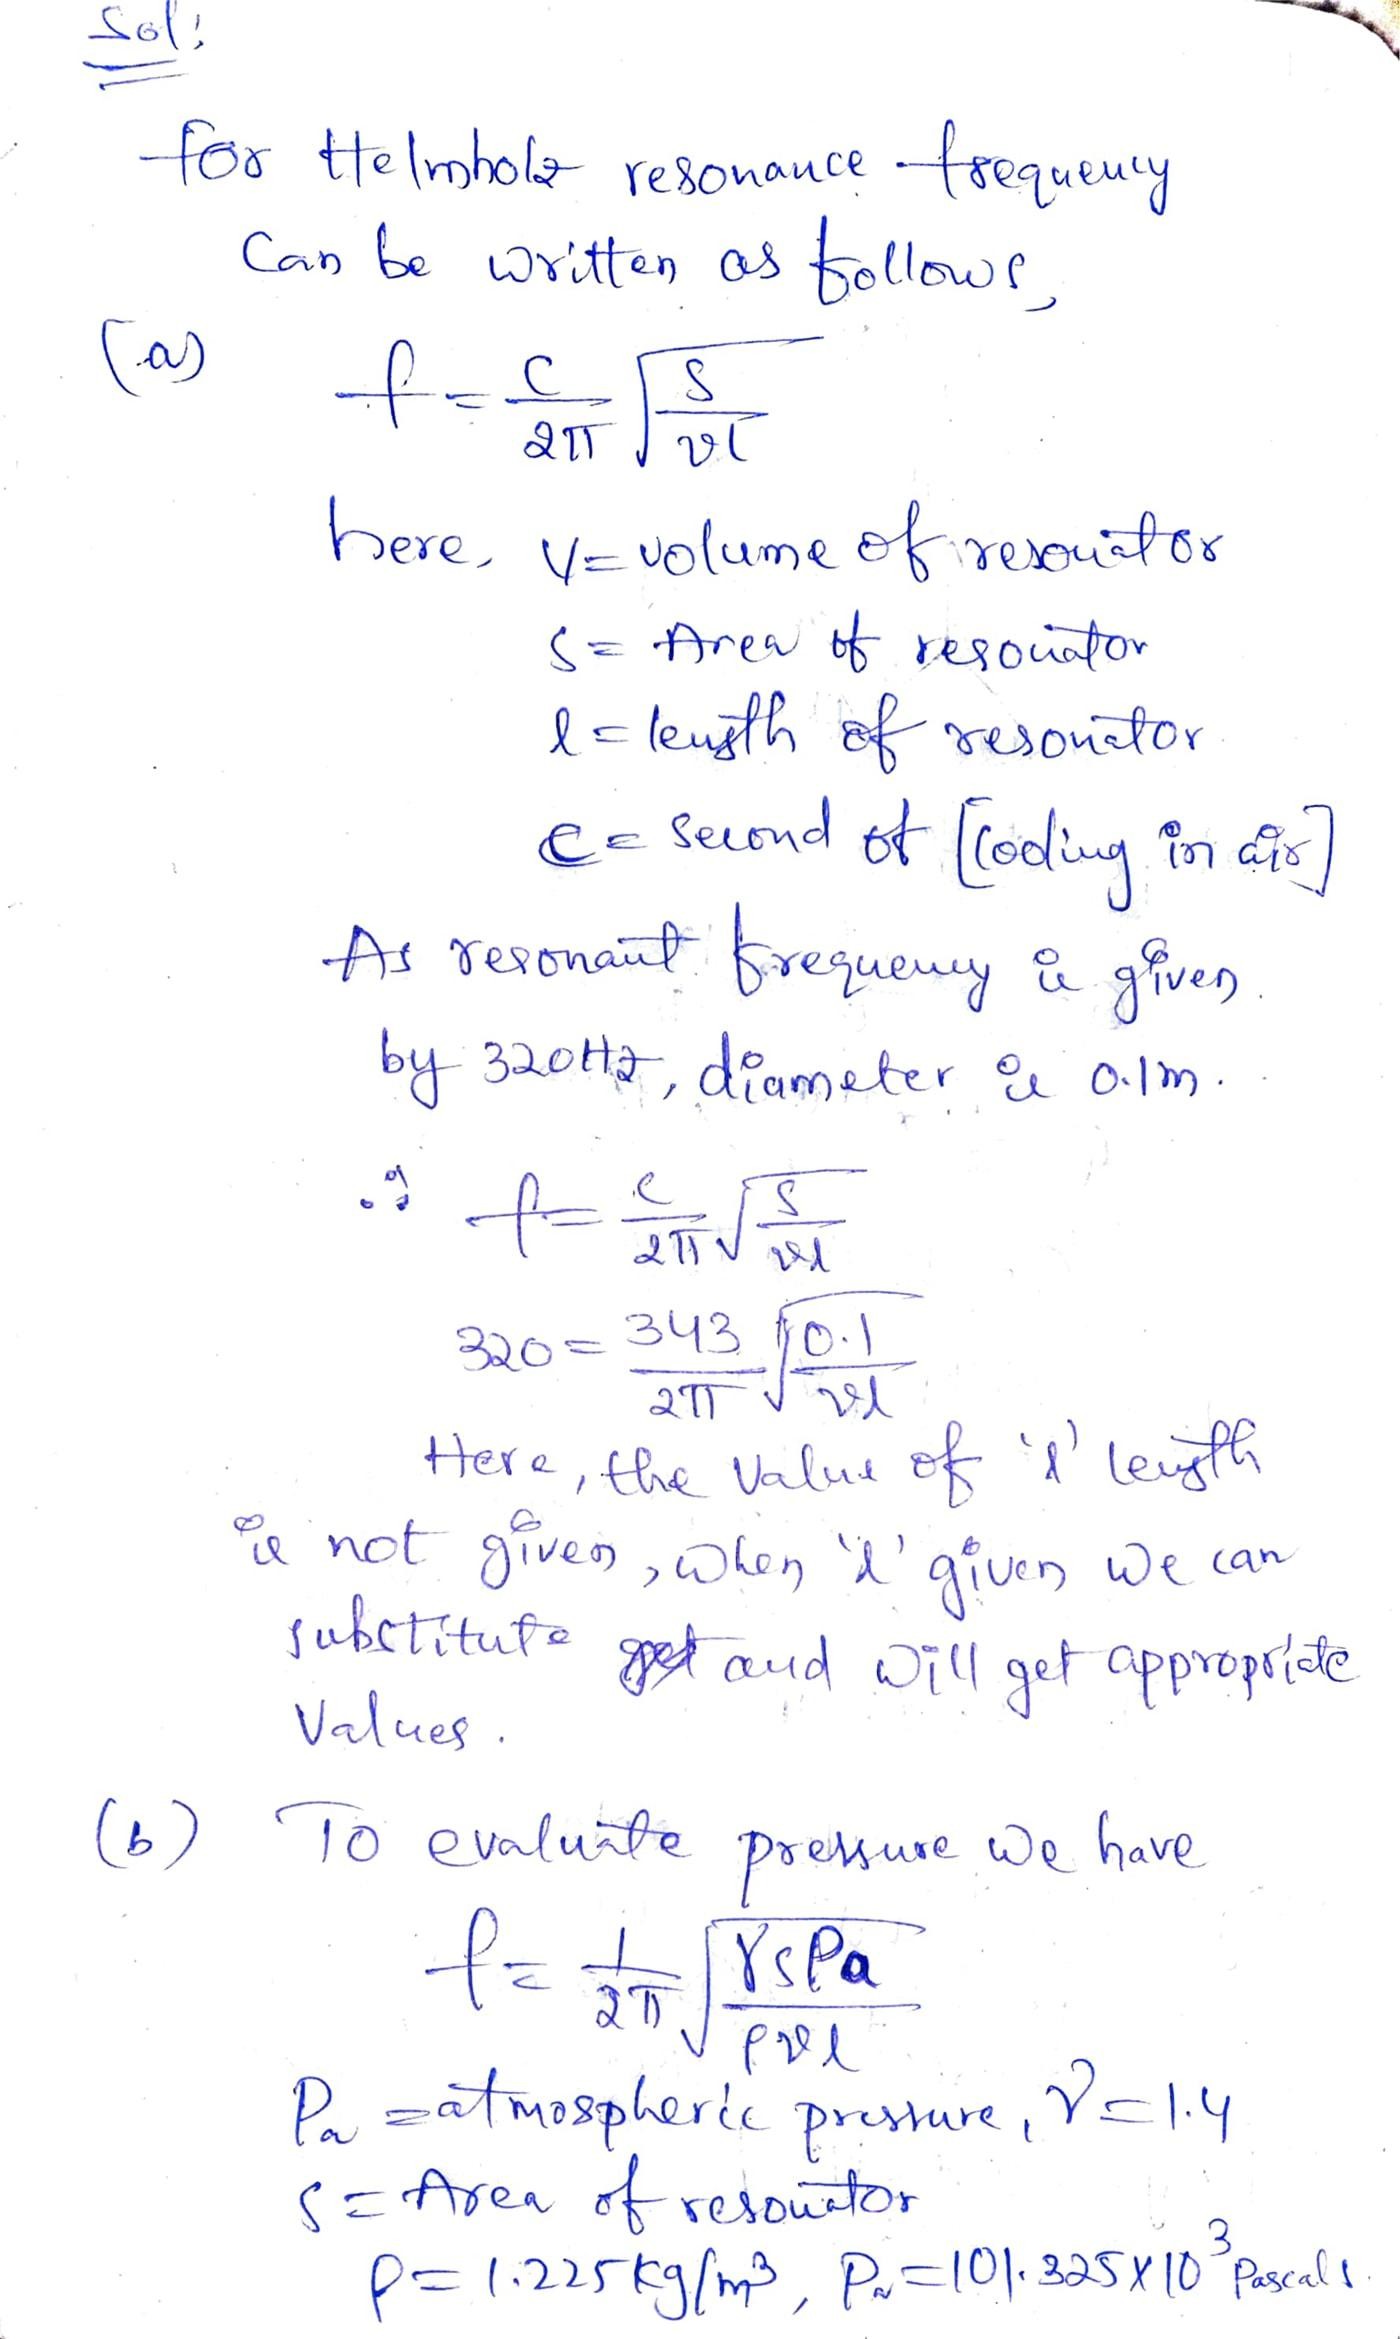 Sol:
for Helmholz resonance frequency
Can be written as follows,
(a) f = c/2π √(S/vl)
here, V = volume of resonator
S = Area of resonator
l = length of resonator
c = Second of [Cooling in air]
As resonant frequency is given
by 320Hz, diameter is 0.1m.
∴ f = c/2π √(S/vl)
320 = 343/2π √(0.1/vl)
Here, the value of 'l' length
is not given, when 'l' given we can
substitute and will get appropriate
Values.
(b) To evaluate pressure we have
f = 1/2π √(γsPa/ρvl)
Pa = atmospheric pressure, γ = 1.4
S = Area of resonator
ρ = 1.225 kg/m³, Pa = 101.325 x 10³ Pascals.